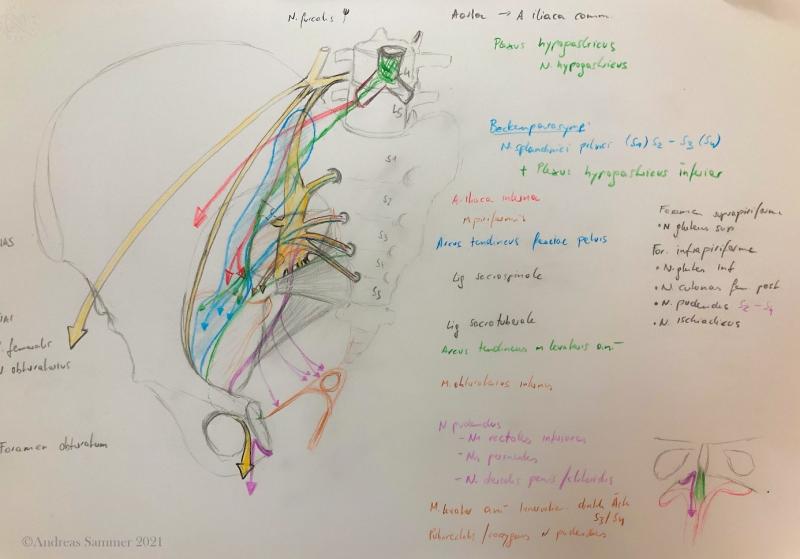 N. furcalis ψ
Aorta → A iliaca comm.
Plexus hypogastricus
N. hypogastricus
L5
Beckenparasymp.
N. splanchnici pelvici (S1) S2 - S3 (S4)
+ Plexus hypogastricus inferior
A. iliaca interna
M piriformis
Arcus tendineus fasciae pelvis
Lig sacrospinale
Lig sacrotuberale
Arcus tendineus m levatoris ani
M. obturatorius internus
N pudendus
- Nn rectales inferiores
- Nn perineales
- N. dorsalis penis/clitoridis
M. levator ani direkte Äste
S3/S4
Puborectalis / coccygeus N pudendus
Foramen suprapiriforme
• N gluteus sup
For. infrapiriforme
• N. gluteus inf
• N. cutaneus fem post
• N. pudendus S2 - S4
• N. ischiadicus
S1
S2
S3
S4
S5
IAS
. femoralis
obturatorius
Foramen obturatum
©Andreas Sammer 2021